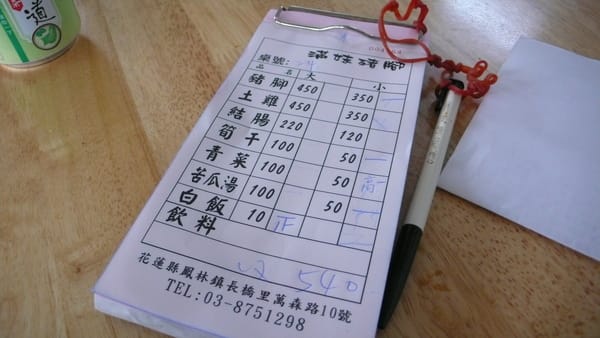 道
滿妹豬腳
桌號:
品名 大 小
豬腳 450 350 一
土雞 450 350
結腸 220 120
筍干 100 50 一
青菜 100 50
苦瓜湯 100 50
白飯 10 正
飲料
540
花蓮縣鳳林鎮長橋里萬森路10號
TEL:03-8751298